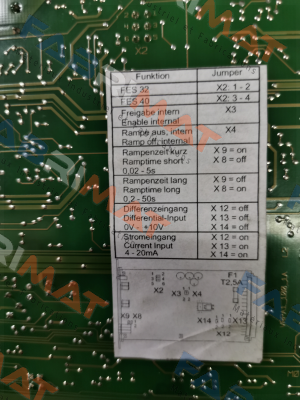 X2
Funktion Jumper *3
FES 32 X2: 1 - 2
FES 40 X2: 3 - 4
Freigabe intern X3
Enable internal
Rampe aus, intern X4
Ramp off, internal
Rampenzeit kurz X 9 = on
Ramptime short X 8 = off
0,02 - 5s
Rampenzeit lang X 9 = off
Ramptime long X 8 = on
0,2 - 50s
Differenzeingang X 12 = off
Differential-Input X 13 = off
0V - +10V X 14 = off
Stromeingang X 12 = on
Current Input X 13 = on
4 - 20mA X 14 = on
F1
T2,5A
X2 X3 X4
X9 X8
X14 X13
X12
FARIMAT